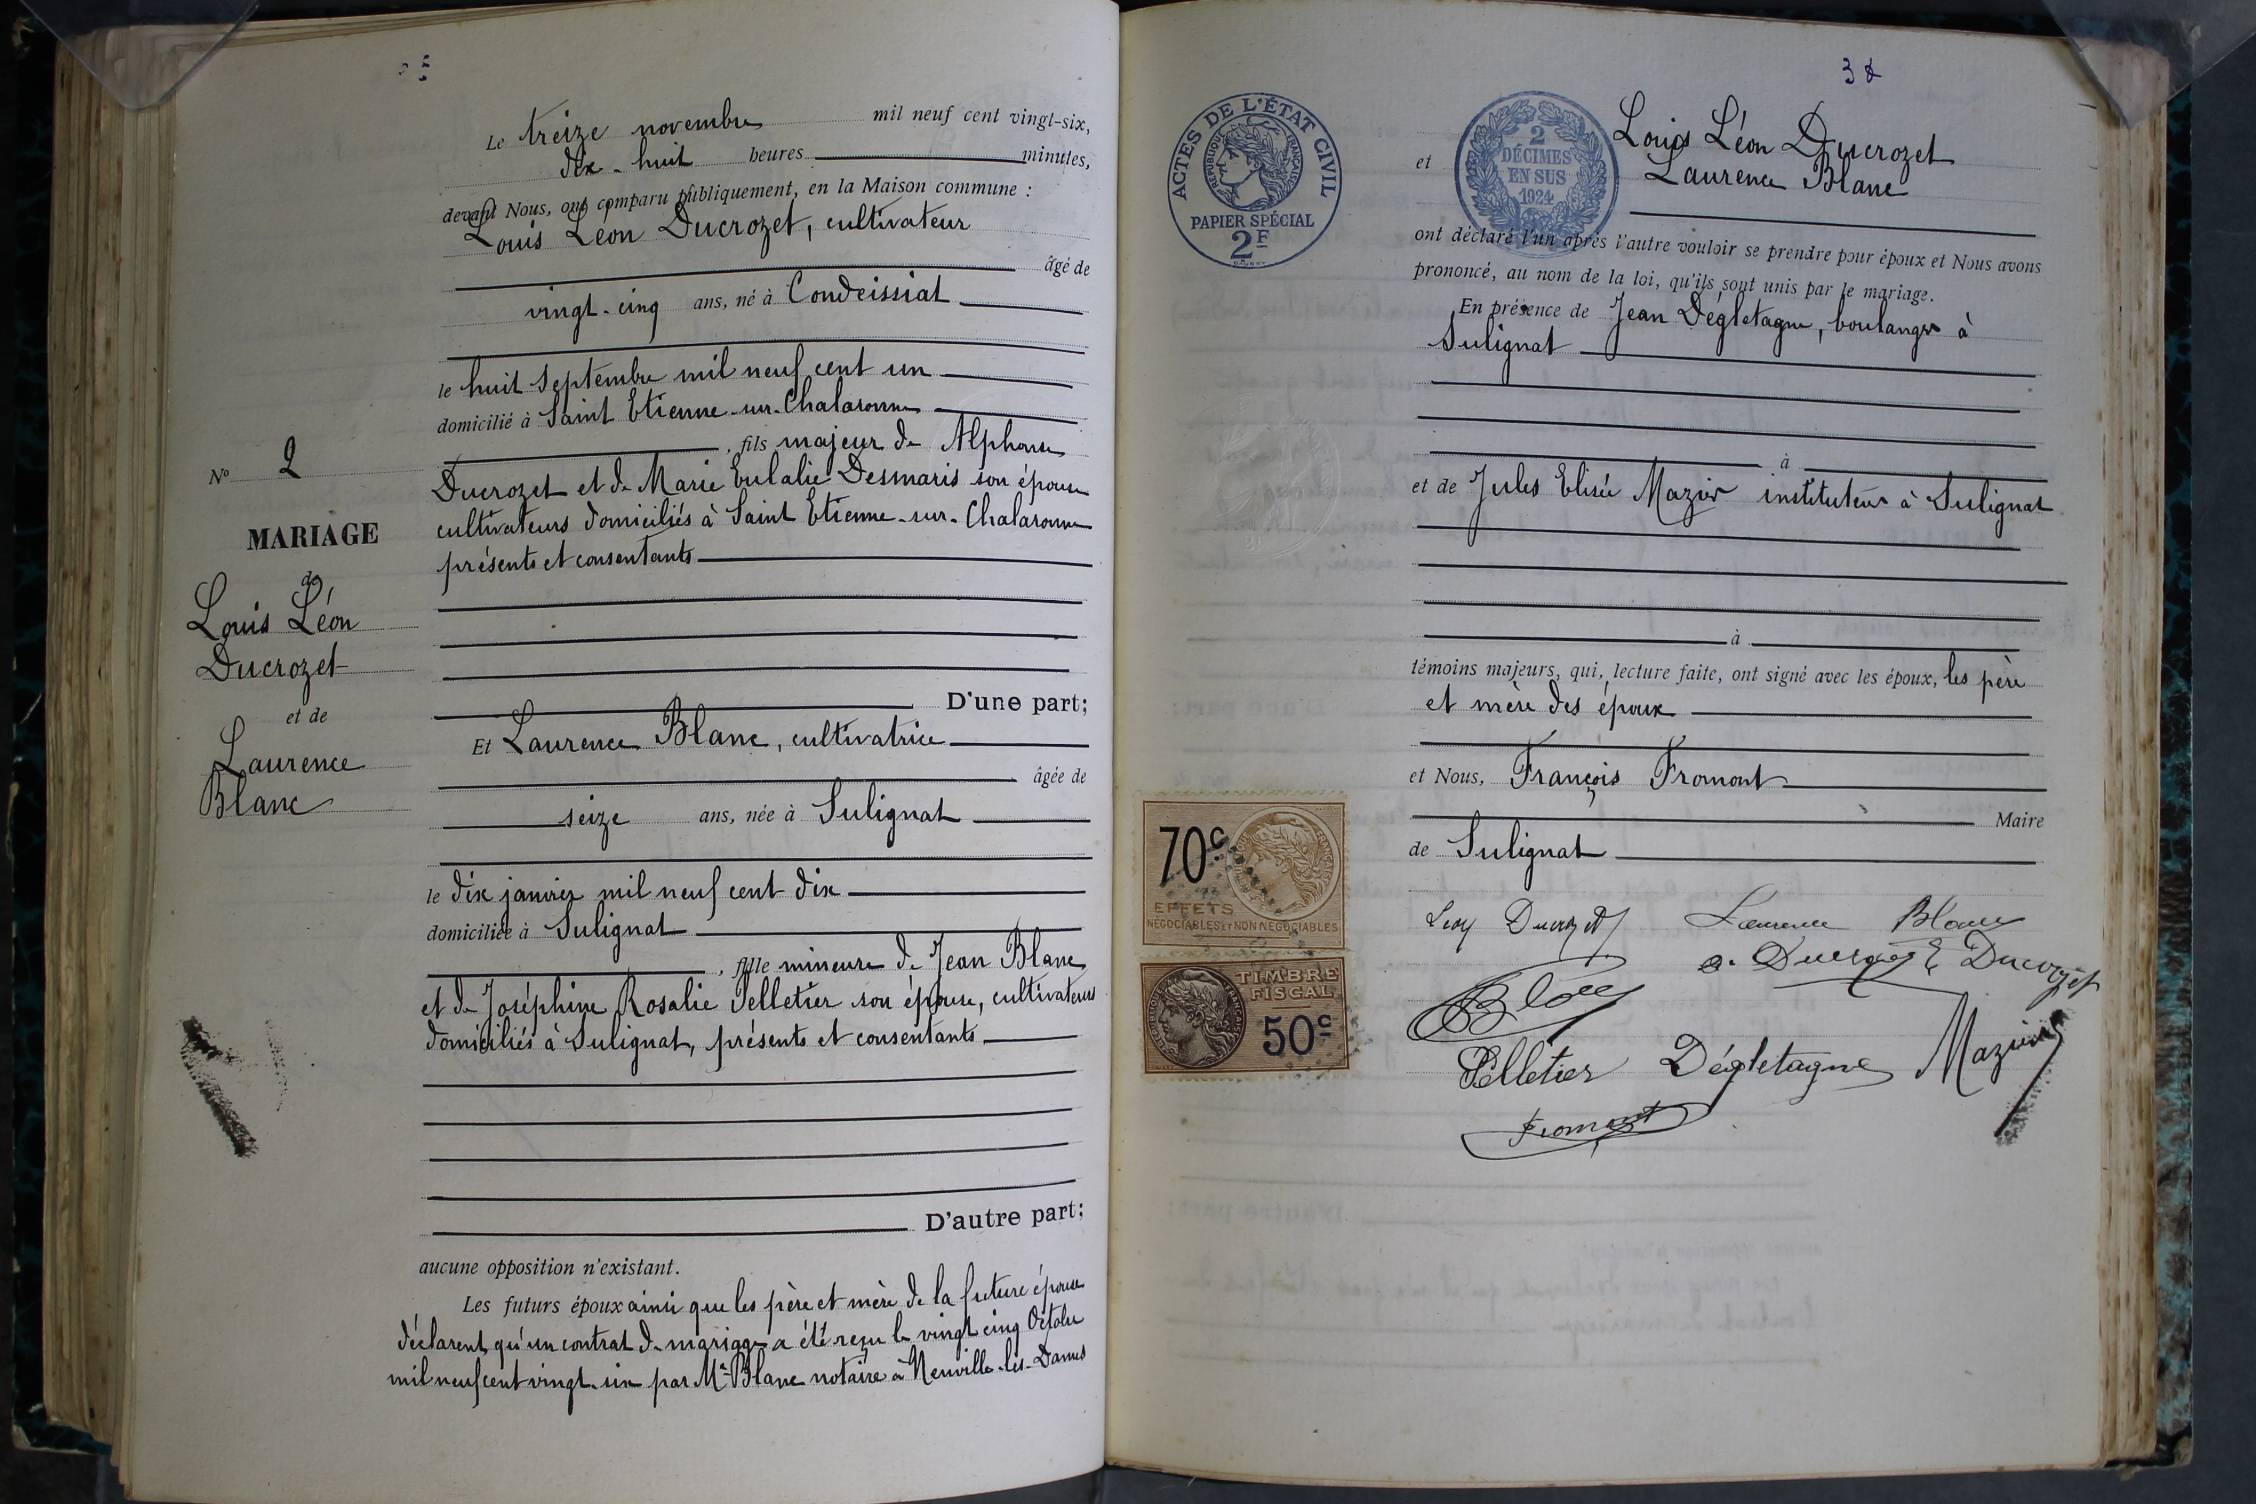 Le treize novembre mil neuf cent vingt-six,
dix-huit heures minutes,
devant Nous, ont comparu publiquement, en la Maison commune :
Louis Léon Ducrozet, cultivateur
âgé de
vingt-cinq ans, né à Condeissiat
le huit septembre mil neuf cent un
domicilié à Saint Etienne-sur-Chalaronne
, fils majeur de Alphonse
Ducrozet et de Marie Eulalie Desmaris son épouse
cultivateurs domiciliés à Saint Etienne-sur-Chalaronne
présents et consentants
D'une part;
Et Laurence Blanc, cultivatrice
âgée de
seize ans, née à Sulignat
le dix janvier mil neuf cent dix
domiciliée à Sulignat
, fille mineure de Jean Blanc
et de Joséphine Rosalie Pelletier son épouse, cultivateurs
domiciliés à Sulignat, présents et consentants
D'autre part;
aucune opposition n'existant.
Les futurs époux ainsi que les père et mère de la future épouse
déclarent qu'un contrat de mariage a été reçu le vingt cinq Octobre
mil neuf cent vingt-six par Me Blanc notaire à Neuville-les-Dames
No 2
MARIAGE
de
Louis Léon
Ducrozet
et de
Laurence
Blanc
ACTES DE L'ÉTAT CIVIL
RÉPUBLIQUE FRANÇAISE
PAPIER SPÉCIAL
2F
2
DÉCIMES
EN SUS
1924
Louis Léon Ducrozet
et Laurence Blanc
ont déclaré l'un après l'autre vouloir se prendre pour époux et Nous avons
prononcé, au nom de la loi, qu'ils sont unis par le mariage.
En présence de Jean Dégletagne, boulanger à
Sulignat
à
et de Jules Elisée Mazuir instituteur à Sulignat
à
témoins majeurs, qui, lecture faite, ont signé avec les époux, les père
et mère des époux
et Nous, François Fromont
Maire
de Sulignat
70c
EFFETS
NÉGOCIABLES ET NON NÉGOCIABLES
TIMBRE
FISCAL
50c
Léon Ducrozet Laurence Blanc
a. Ducrozet E Ducrozet
Blanc
Pelletier Dégletagne Mazuir
Fromont